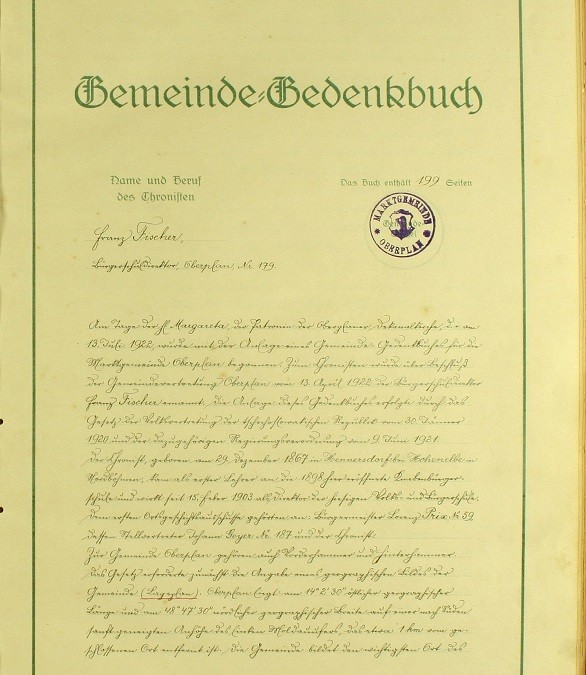 Gemeinde-Gedenkbuch
Name und Beruf
des Chronisten
Das Buch enthält 199 Seiten
MARKTGEMEINDE
OBERPLAN
Franz Fischer,
Bürgerschuldirektor, Oberplan, Nr. 179.
Am Tage der hl. Margareta, der Patronin der Oberplaner Dekanalkirche, d. i. am
13. Juli 1922, wurde mit der Anlage eines Gemeinde-Gedenkbuches für die
Marktgemeinde Oberplan begonnen. Zum Chronisten wurde über Beschluß
der Gemeindevertretung Oberplan vom 13. April 1922 der Bürgerschuldirektor
Franz Fischer ernannt. Die Anlage dieses Gedenkbuches erfolgte durch das
Gesetz der Volksvertretung der tschechoslowakischen Republik vom 30. Jänner
1920 und der dazugehörigen Regierungsverordnung vom 9. Juni 1921.
Der Chronist, geboren am 29. Dezember 1867 in Hennersdorf bei Hohenelbe in
Nordböhmen, kam als erster Lehrer an die 1898 hier eröffnete Knabenbürger-
schule und wirkt seit 15. Feber 1903 als Direktor der hiesigen Volks- und Bürgerschule.
Dem ersten Ortsgeschichtsausschusse gehörten an: Bürgermeister Lorenz Prix Nr. 59,
dessen Stellvertreter Johann Nr. 187 und der Chronist.
Zur Gemeinde Oberplan gehören auch Vorderhammer und Hinterhammer.
Das Gesetz erfordert zunächst die Angabe eines geographischen Bildes der
Gemeinde (Lageplan). Oberplan liegt am 14° 2' 30" östlicher geographischer
Länge und am 48° 47' 30" nördlicher geographischer Breite auf einer nach Süden
sanft geneigten Anhöhe des linken Moldauufers, das etwa 1 km vom ge-
schlossenen Ort entfernt ist. Die Gemeinde bildet den wichtigsten Ort des